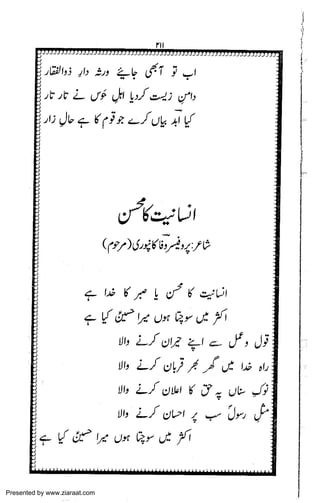 ۲۱۱
اب تو آبھی جایئے ورثہ دارِ ذوالفقار
دامنِ زیست کردیا اہلِ ہَوَس نے تار تار
کیا ابد بیاں کرے جو قوم کا ہے حالِ زار
انسانیت کا محسن
شاعر: پروفیسر وفا کانپوری (مرحوم)
انسانیت کا محسن یا صبر کا خدا ہے
اکثر میں سوچتا ہوں میرا حسینؑ کیا ہے
قول و عمل سے اپنے حیران کرنے والا
راہ خدا میں گھر بھر قربان کرنے والا
نوکِ سناں پہ حق کا اعلان کرنے والا
مثلِ رسولؐ سب پر احسان کرنے والا
اکثر میں سوچتا ہوں میرا حسینؑ کیا ہے
Presented by www.ziaraat.com